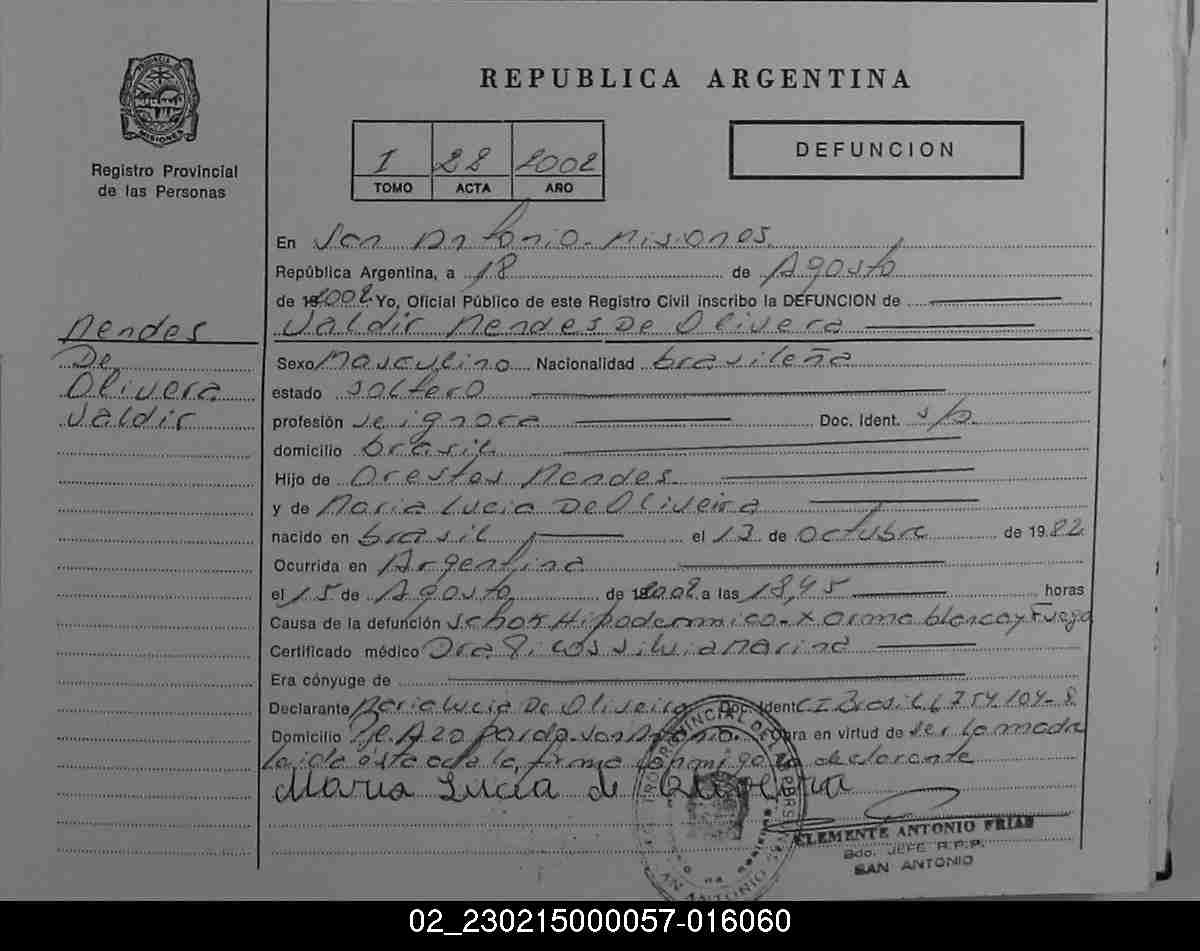 PROVINCIA DE
MISIONES
Registro Provincial
de las Personas
REPUBLICA ARGENTINA
I 22 2002
TOMO ACTA AÑO
DEFUNCION
En San Antonio - Misiones
República Argentina, a 18 de Agosto
de 2002 Yo, Oficial Público de este Registro Civil inscribo la DEFUNCION de
Valdir Mendes De Olivera
Mendes
De
Olivera
Valdir
Sexo Masculino Nacionalidad brasileña
estado soltero
profesión se ignora Doc. Ident.
domicilio brasil
Hijo de Orestes Mendes
y de Maria Lucia De Oliveira
nacido en brasil el 13 de octubre de 1982
Ocurrida en Argentina
el 15 de Agosto de 2002 a las 18,45 horas
Causa de la defunción schok Hipodermico - x arma blanca y Fuego
Certificado médico Dra Silvia Marina
Era cónyuge de
Declarante Maria Lucia De Oliveira Doc. Ident. C.I. Brasil
Domicilio San Antonio. Obra en virtud de ser la madre
leida esta acta la firma conmigo la declarante
Maria Lucia de Oliveira
CLEMENTE ANTONIO FRIAS
JEFE R.P.P.
SAN ANTONIO
02_230215000057-016060